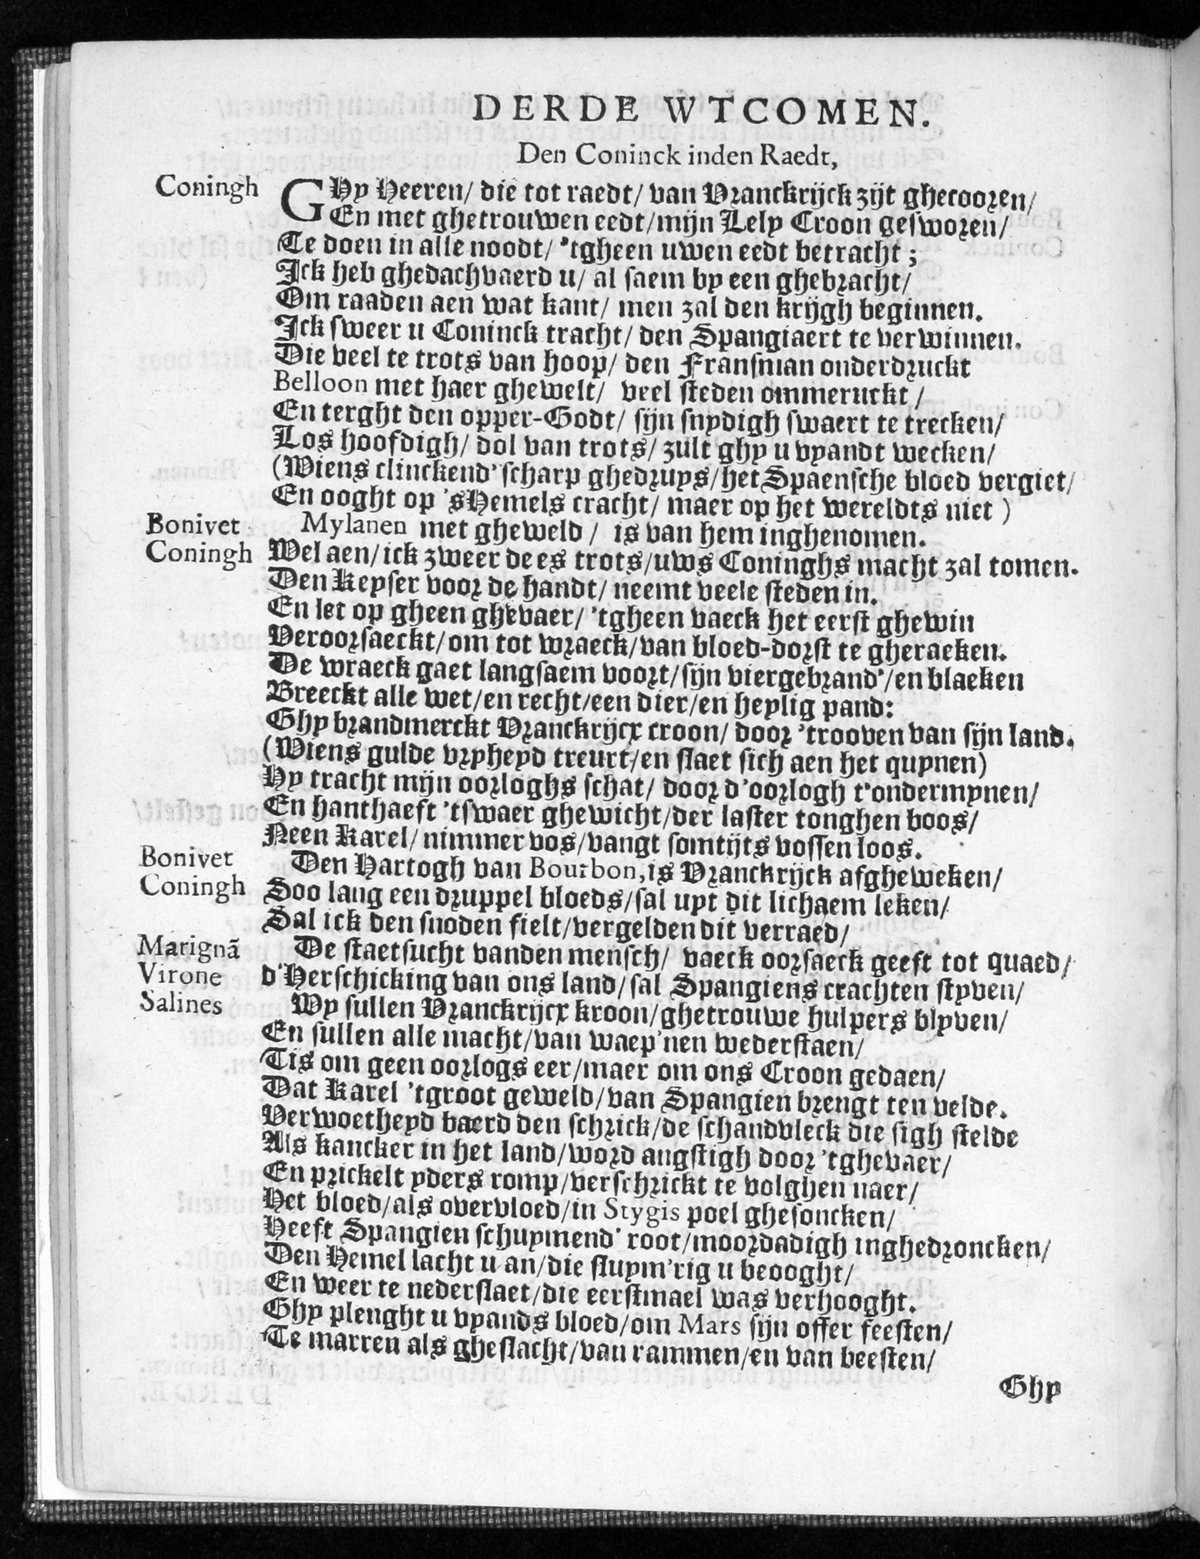 DERDE WTCOMEN.
Den Coninck inden Raedt,
Coningh GHy Heeren/ die tot raedt/ van Vranckrijck zijt ghecooren/
En met ghetrouwen eedt/mijn Lely Croon gesworen/
Te doen in alle noodt/ 'tgheen uwen eedt betracht;
Ick heb ghedachvaerd u/ al saem by een ghebracht/
Om raaden aen wat kant/ men zal den krijgh beginnen.
Ick sweer u Coninck tracht/ den Spangiaert te verwinnen.
Die veel te trots van hoop/ den Fransman onderdruckt
Belloon met haer ghewelt/ veel steden ommeruckt /
En terght den opper-Godt/ sijn snydigh swaert te trecken/
Los hoofdigh/ dol van trots/ zult ghy u vyandt wecken/
(Wiens clinckend' scharp ghedruys/het Spaensche bloed vergiet/
En ooght op 'sHemels cracht/ maer op het wereldts niet )
Bonivet Mylanen met gheweld / is van hem inghenomen.
Coningh Wel aen/ick zweer dees trots/uws Coninghs macht zal tomen.
Den Keyser voor de handt/ neemt veele steden in.
En let op gheen ghevaer/ 'tgheen vaeck het eerst ghewin
Veroorsaeckt/om tot wraeck/van bloed-dorst te gheraeken.
De wraeck gaet langsaem voort/sijn viergebrand'/en blaeken
Breeckt alle wet/en recht/een dier/en heylig pand:
Ghy brandmerckt Vranckrijcx croon/ door 'trooven van sijn land.
(Wiens gulde vryheyd treurt/en slaet sich aen het quynen)
Hy tracht mijn oorloghs schat/ door d'oorlogh t'ondermynen/
En hanthaeft 'tswaer ghewicht/der laster tonghen boos/
Neen Karel/ nimmer vos/vangt somtijts vossen loos.
Bonivet Den Hartogh van Bourbon,is Vranckrijck afgheweken/
Coningh Soo lang een druppel bloeds/sal uyt dit lichaem leken/
Sal ick den snoden fielt/vergelden dit verraed/
Marignã De staetsucht vanden mensch/ vaeck oorsaeck geeft tot quaed/
Virone d'Herschicking van ons land/sal Spangiens crachten styven/
Salines Wy sullen Vranckrijcx kroon/ghetrouwe hulpers blyven/
En sullen alle macht/van waep'nen wederstaen/
Tis om geen oorlogs eer/maer om ons Croon gedaen/
Dat Karel 'tgroot geweld/van Spangien brengt ten velde.
Verwoetheyd baerd den schrick/de schandvleck die sigh stelde
Als kancker in het land/word angstigh door 'tghevaer/
En prickelt yders romp/verschrickt te volghen naer/
Het bloed/als overvloed/in Stygis poel ghesoncken/
Heeft Spangien schuymend' root/moordadigh inghedroncken/
Den Hemel lacht u an/die sluym'rig u beooght/
En weer te nederslaet/die eerstmael was verhooght.
Ghy plenght u vyands bloed/om Mars sijn offer feesten/
Te marren als gheslacht/van rammen/en van beesten/
Ghy